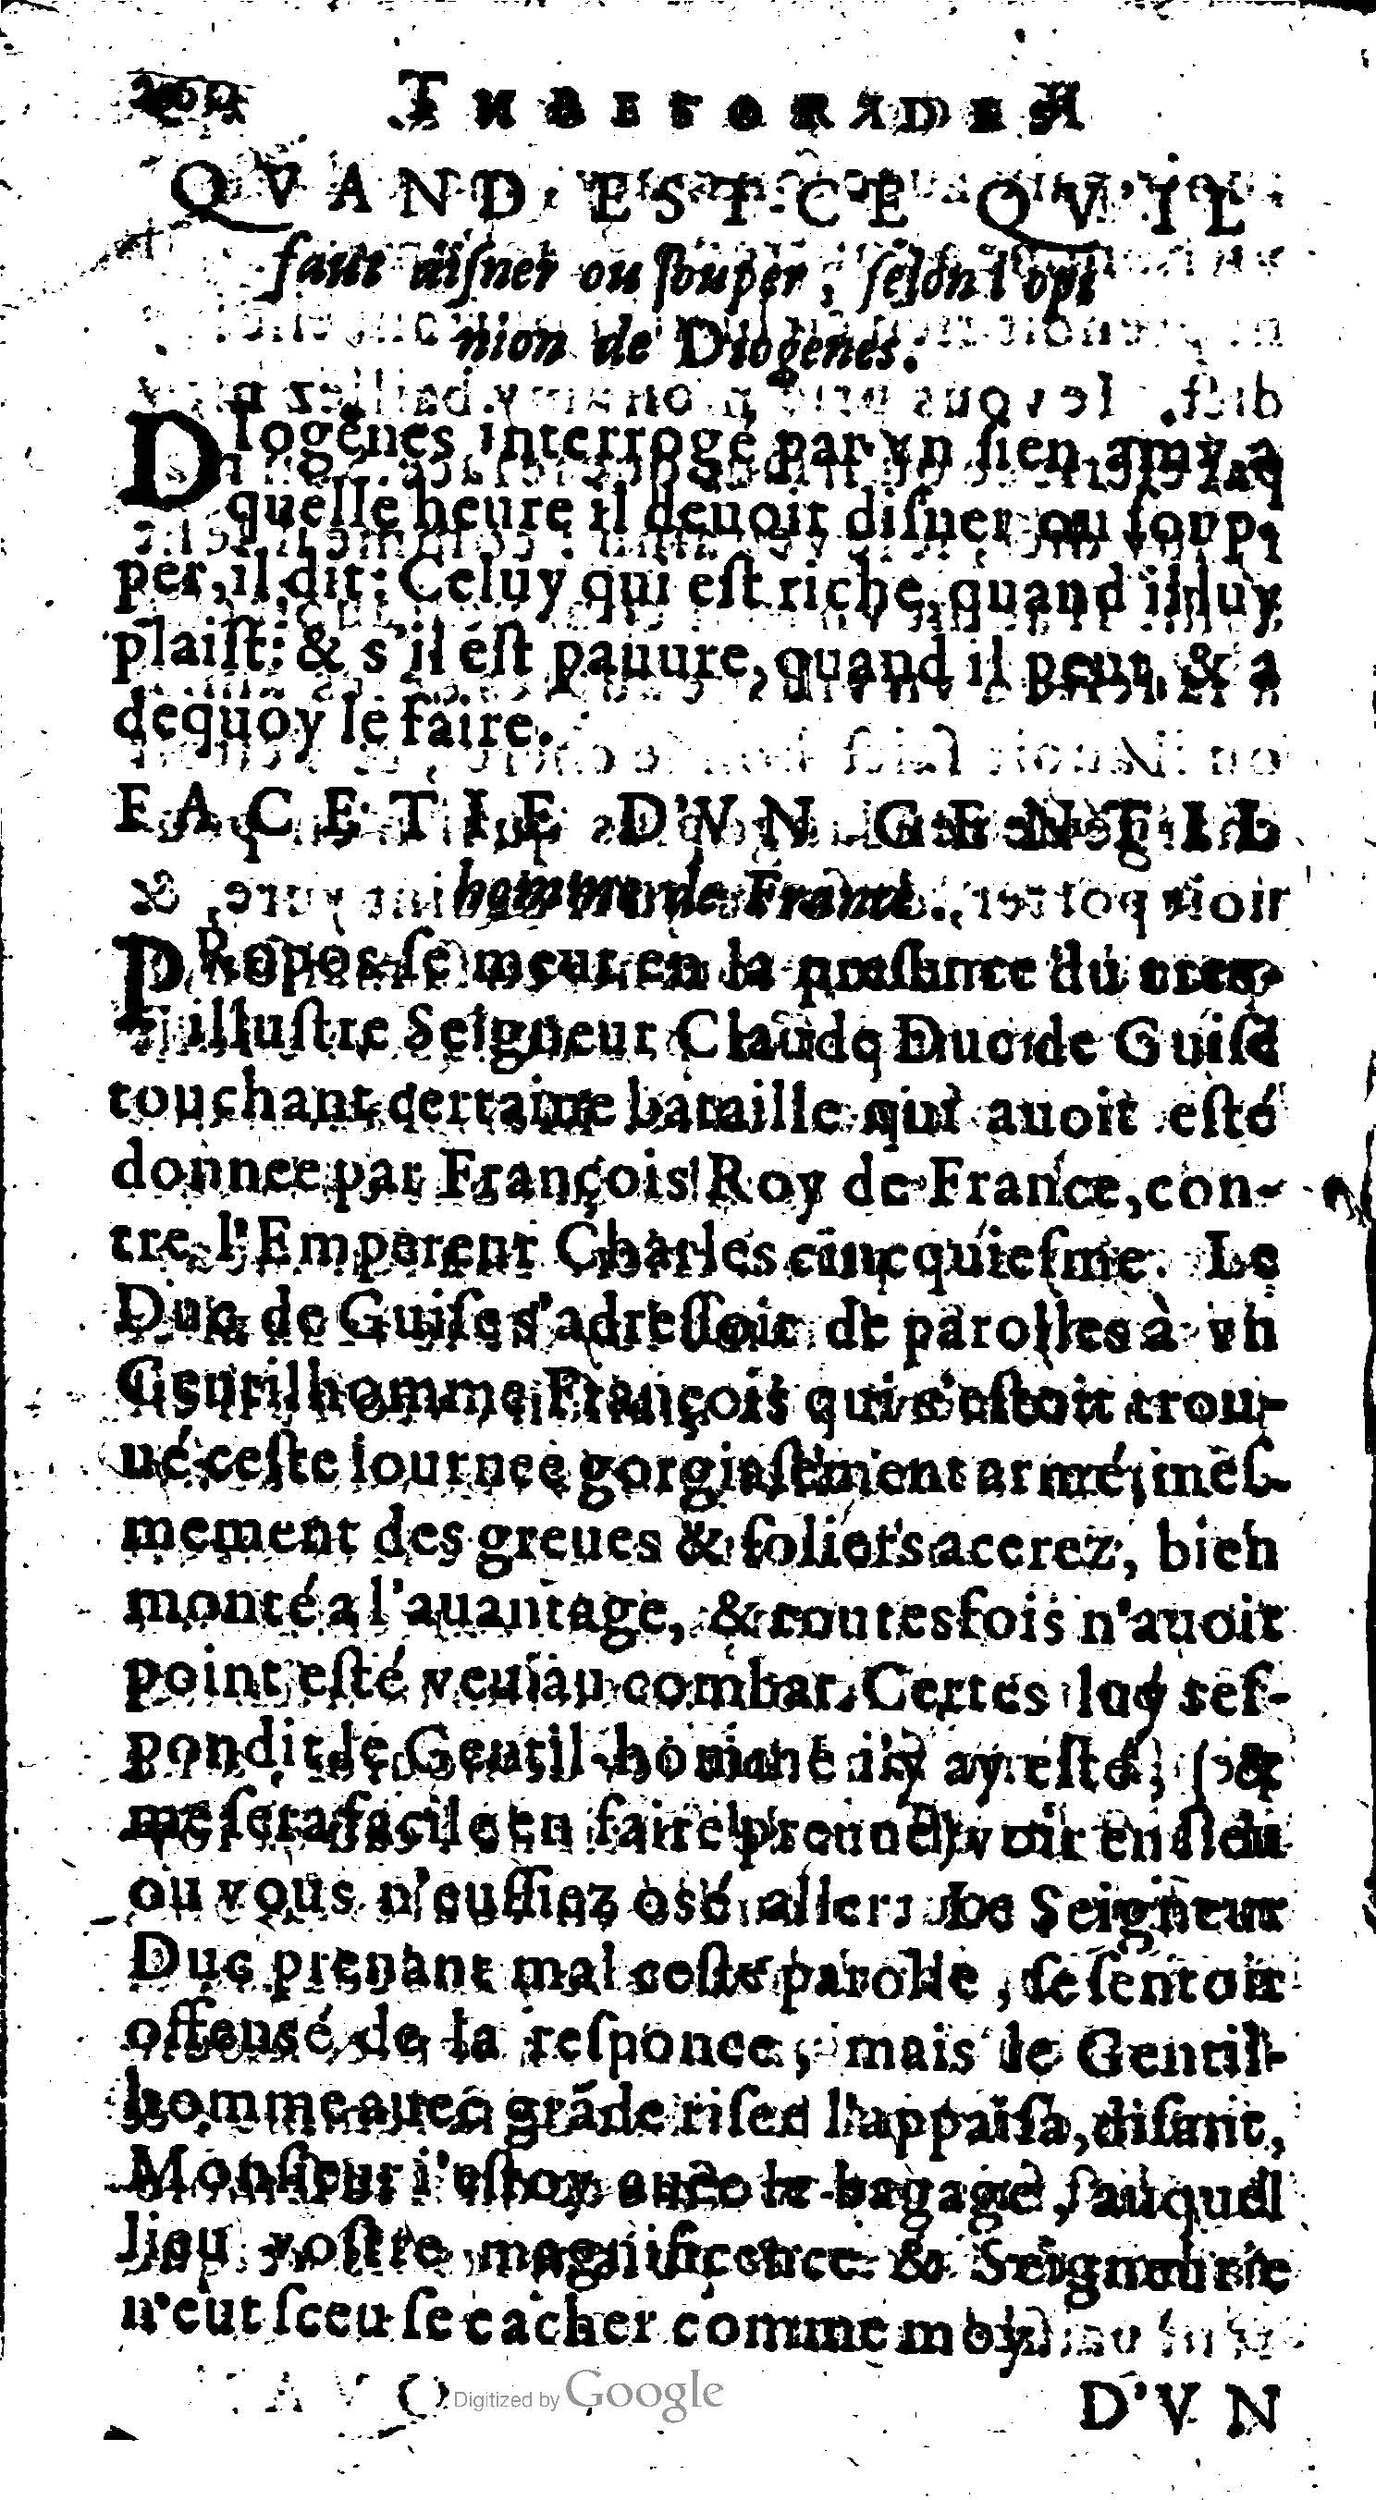 THRESOR DES
QVAND EST CE QV'IL
faut disner ou souper, selon l'opi
nion de Diogenes.
DIogenes interrogé par vn sien amy a
quelle heure il deuoit disner ou soup-
per, il dit: Celuy qui est riche, quand il luy
plaist: & s'il est pauure, quand il peut, & a
dequoy le faire.
FACETIE D'VN GENTIL
homme de France.
PRopos se meut en la presence du tres-
illustre Seigneur Claude Duc de Guise
touchant certaine bataille qui auoit esté
donnee par François Roy de France, con-
tre l'Empereur Charles cincquiesme. Le
Duc de Guise s'adressoit de parolles à vn
Gentilhomme François qui s'estoit trou-
ué ceste iournee gorgiasement armé, mes-
mement des greues & soliers accrez, bien
monté a l'auantage, & toutesfois n'auoit
point esté veu au combat. Certes luy res-
pondit le Gentil-homme i'y ay esté, (&
me sera facile en faire preuue) voir en lieu
ou vous n'eussiez osé aller. Le Seigneur
Duc prenant mal ceste parolle, se sentoit
offensé de la responce, mais le Gentil-
homme auec grãde risee l'appaisa, disant,
Monsieur i'estoy auec le bagage, auquel
lieu vostre magnificence & Seigneurie
n'eut sceu se cacher comme moy.
D'VN
Digitized by Google